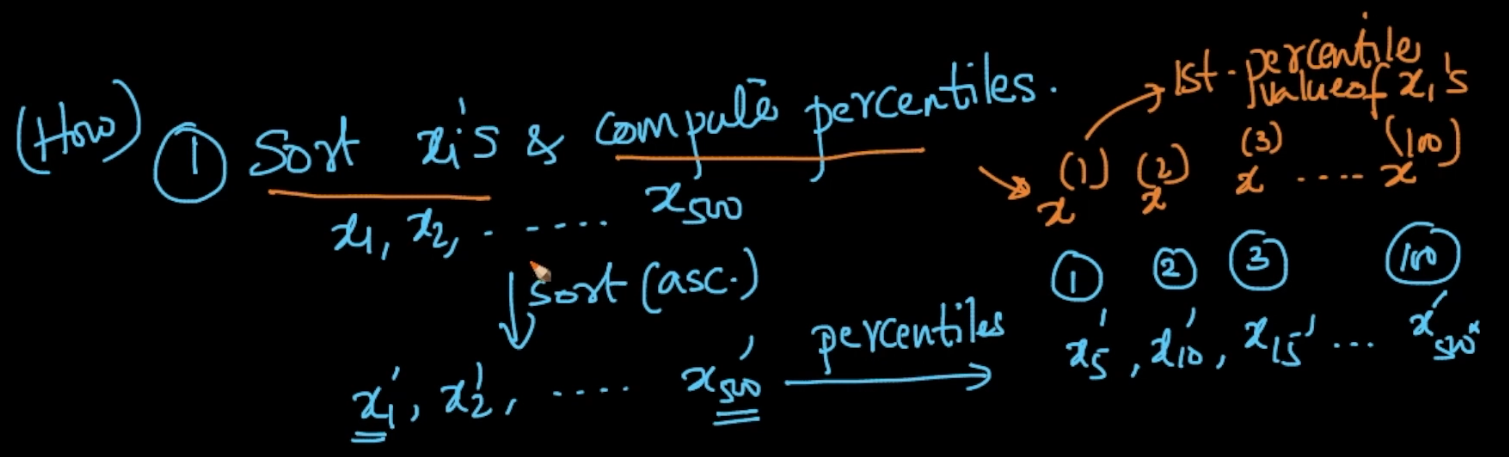 (How) ① Sort xi's & compute percentiles.
x1, x2, ...... x500
↓ Sort (asc.)
x1', x2', ..... x500' percentiles →
→ 1st-percentile
value of xi's
x^(1) x^(2) x^(3) .... x^(100)
① ② ③ (100)
x5', x10', x15' ... x500'